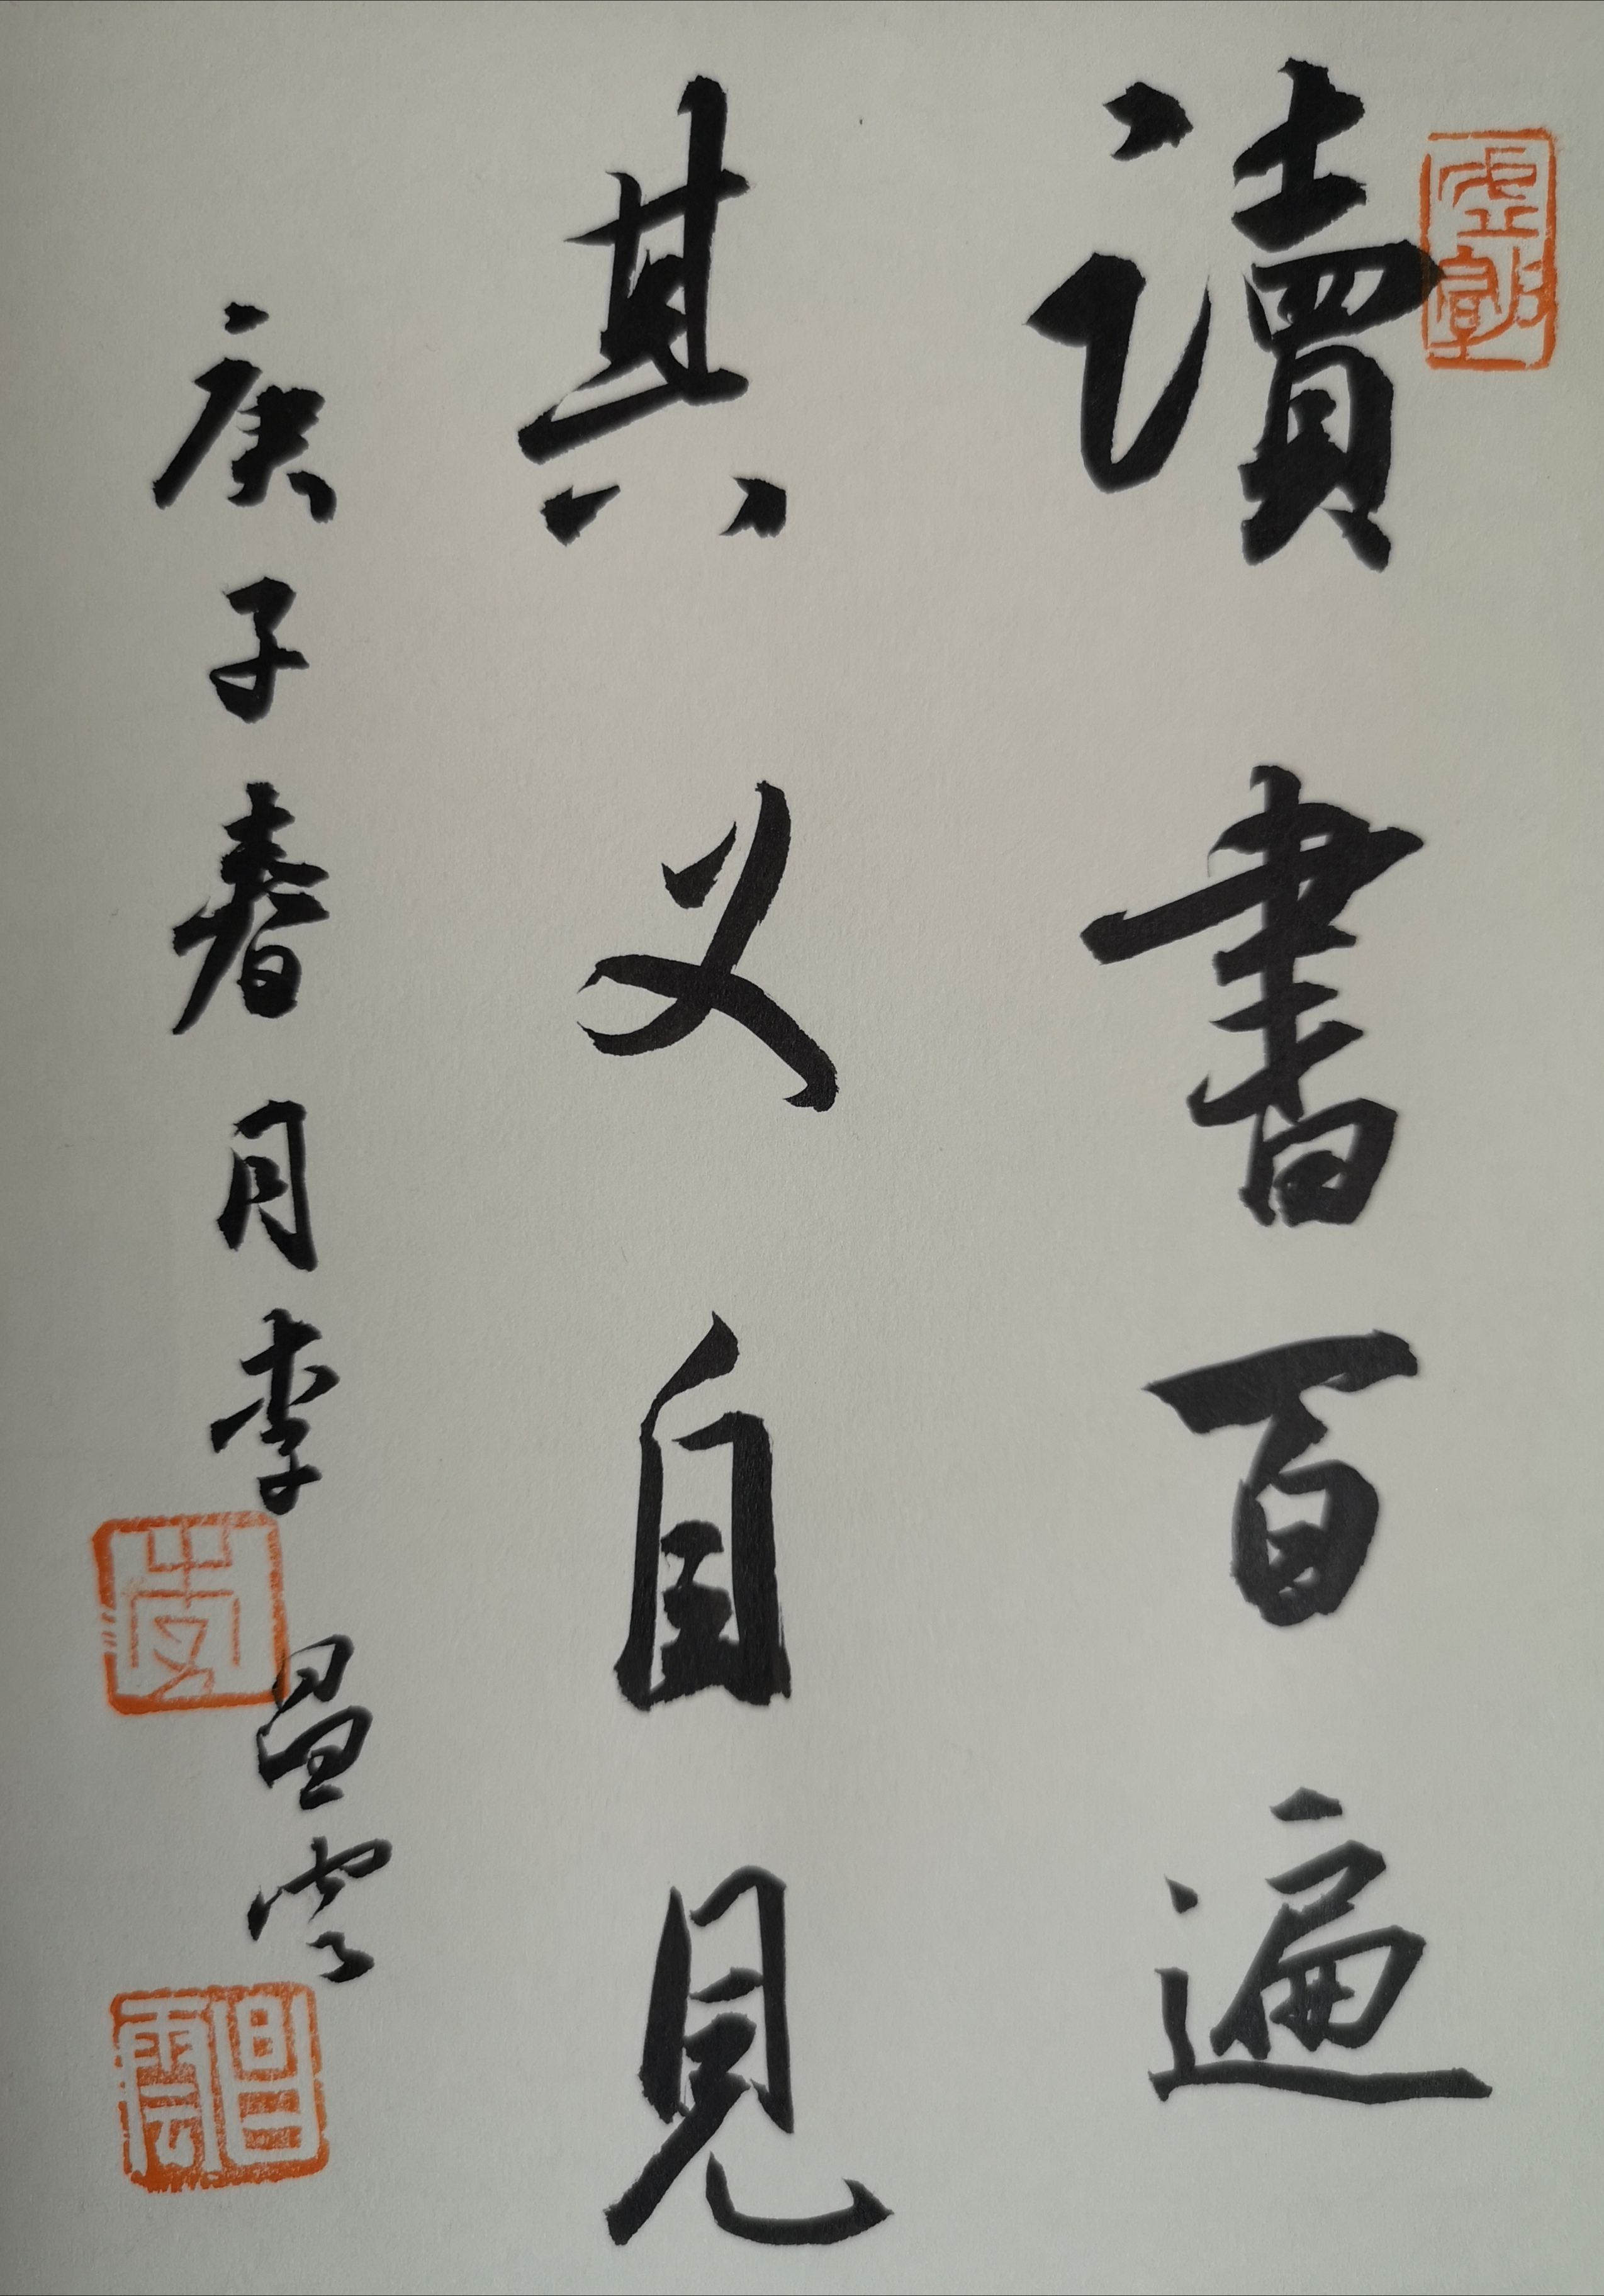 讀書百遍
其义自見
庚子春月李昌雲
李
昌雲